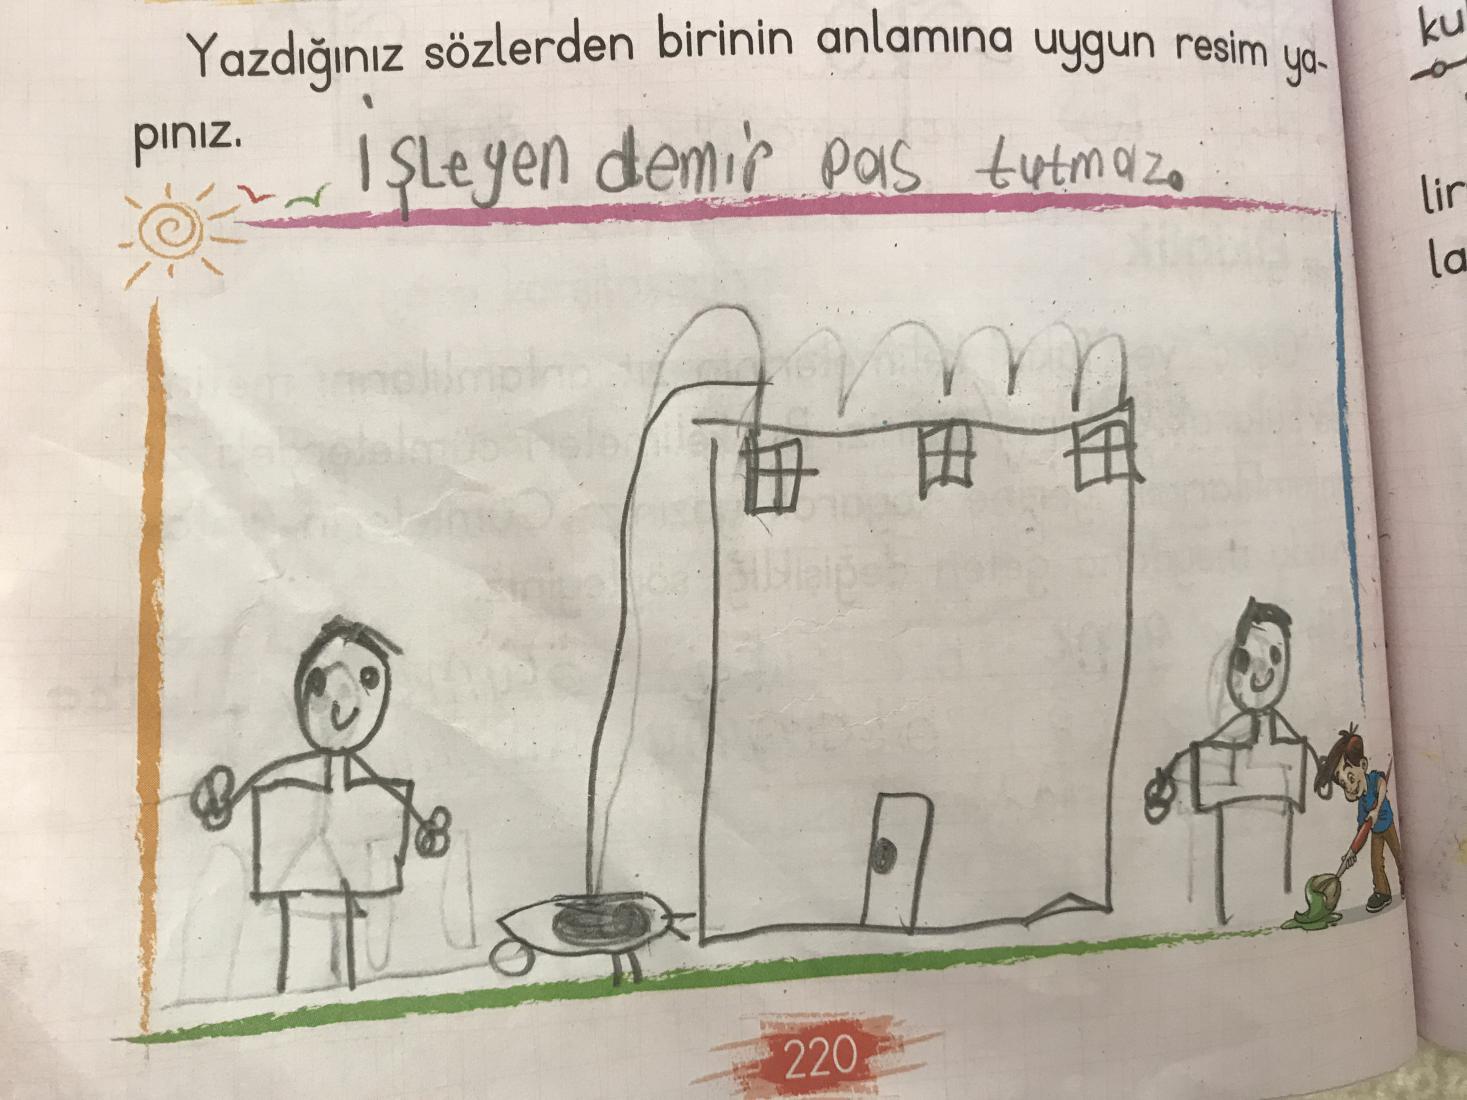 Yazdığınız sözlerden birinin anlamına uygun resim ya-
pınız.
İşleyen demir pas tutmaz.
220
ku
lir
la